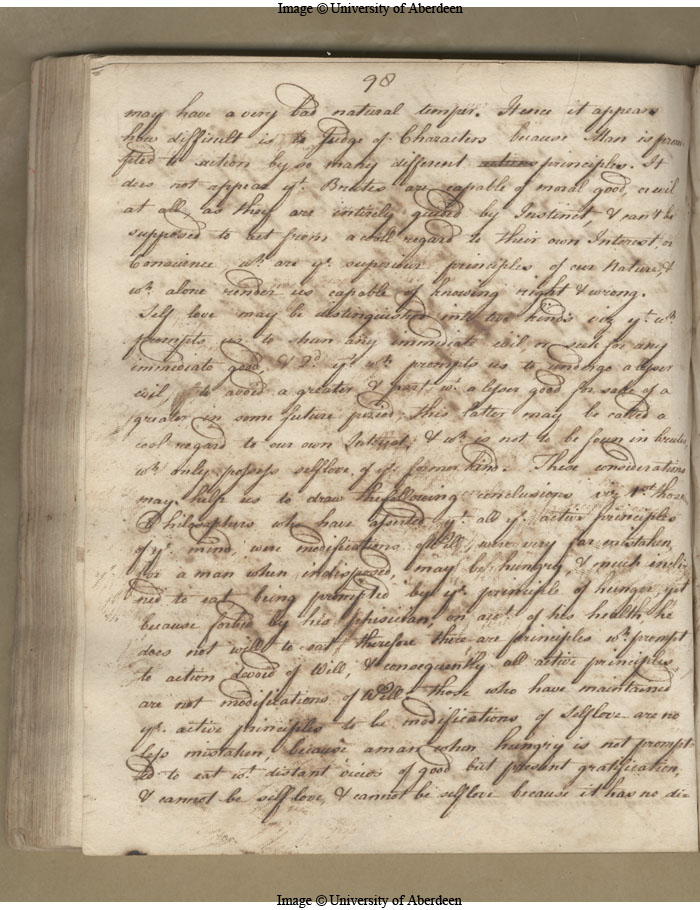 Image © University of Aberdeen
98
may have a very bad natural temper. Hence it appears
how difficult is to Judge of Characters because Man is prom
pted to action by so many different actions principles. It
does not appear yt. Brutes are capable of moral good, or evil
at all, as they are intirely guided by Instinct, & can't be
supposed to act from a cool regard to their own Interest or
Conscience wh. are ye. superiour principles of our Nature, &
wh. alone render us capable of knowing right & wrong.
Self love may be distinguished into two kinds viz yt. wh.
prompts us to shun any immediate evil, or seek for any
immediate good, & 2d. yt. wh. prompts us to undergo a lesser
evil, to avoid a greater & part wt. a lesser good for sake of a
greater in some future period. This latter may be called a
cool regard to our own Interest, & wh. is not to be foun in brutes
wh. only possess selflove of ye. former kind. These considerations
may help us to draw the following conclusions viz 1st those
Philosophers who have asserted yt. all ye. active principles
of ye. mind, were modifications of Will, were very far mistaken
for a man when indisposed, may be hungry, & much incli
ned to eat being prompted by ye. principle of hunger, yet
because forbid by his physician, on acct. of his health he
does not will to eat therefore there are principles wh. prompt
to action devoid of Will, & consequently all active principles
are not modifications of Will. Those who have maintained
ye. active principles to be modifications of Selflove are no
less mistaken, because a man when hungry is not prompt
ed to eat distant views of good but present gratification,
& cannot be self love, & cannot be selflove because it has no di-
Image © University of Aberdeen